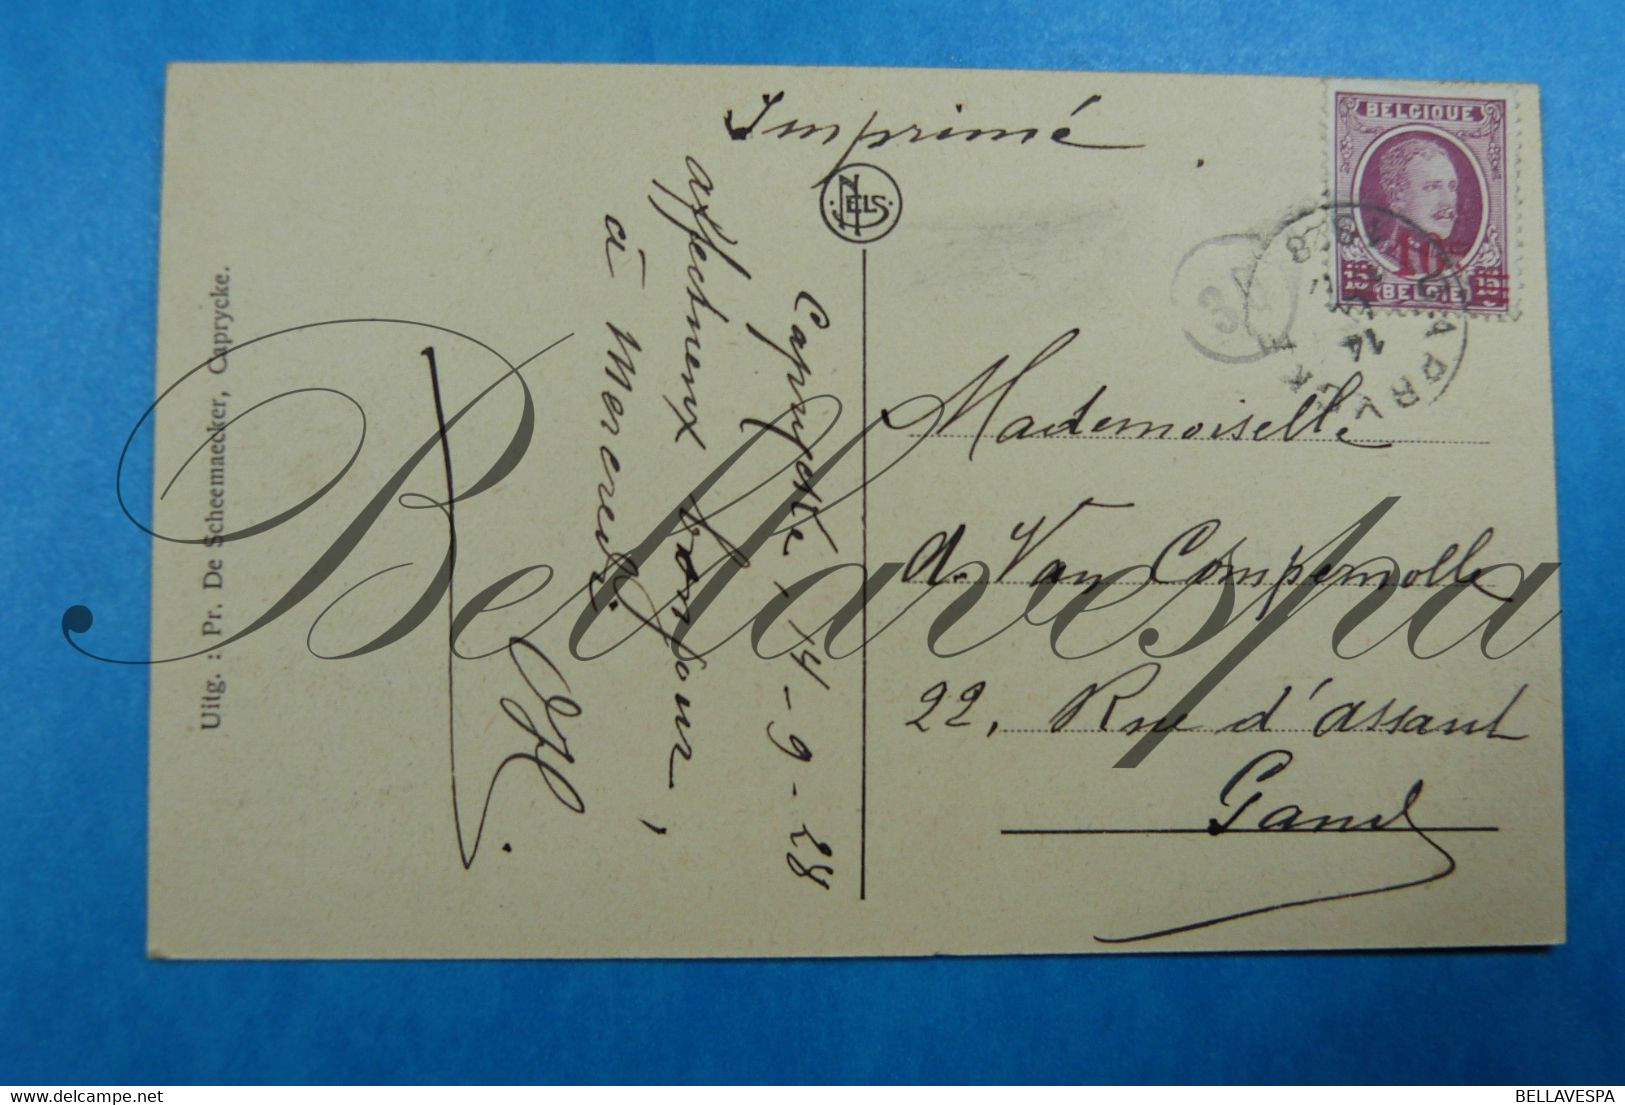 Imprimé
NELS
BELGIQUE
10c
15 BELGIË 15
CAPRYCKE
14
34
Caprycke, 14-9-28
affectueux bonjour,
à Mercredi.
Mademoiselle
A. Van Compernolle
22, Rue d'assaut
Gand
Uitg. : Pr. De Scheemaecker, Caprycke.
Bellavespa
BELLAVESPA